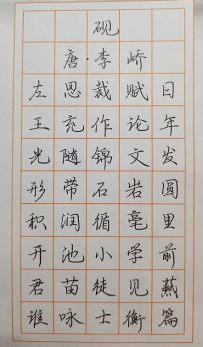 砚
唐·李峤
左思裁赋日
王充作论年
光随锦文发
形带石岩圆
积润循毫里
开池小学前
君苗徒见爇
谁咏士衡篇